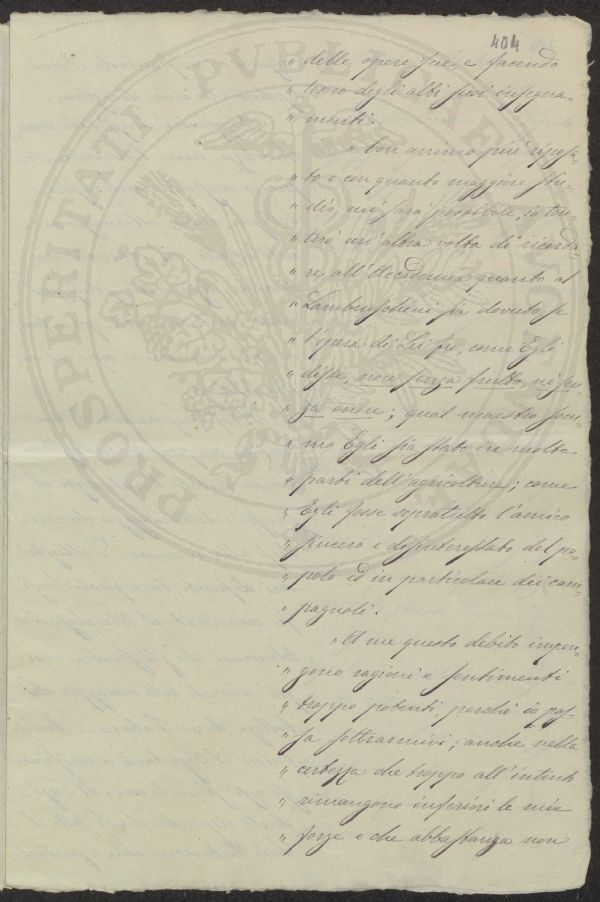 404
" delle opere sue, e facendo
" tesoro degli altri suoi insegna-
" menti.
" Con animo più riposa-
" to e con quanto maggiore stu-
" dio, mi sarà possibile, io ten-
" terò un'altra volta di ricorda-
" re all'Accademia quanto al
" Lambruschini sia dovuto se
" l'opera di Lei fu, come Egli
" disse, non senza frutto, nè sen-
" za onore; qual maestro som-
" mo Egli sia stato in molte
" parti dell'agricoltura; come
" Egli fosse sopratutto l'amico
" sincero e disinteressato del po-
" polo ed in particolare dei cam-
" pagnoli.
" A me questo debito impon-
" gono ragioni e sentimenti
" troppo potenti, perchè io pos-
" sa sottrarmivi; anche nella
" certezza che troppo all'intento
" rimangono inferiori le mie
" forze e che abbastanza non
PROSPERITATI PUBLICAE